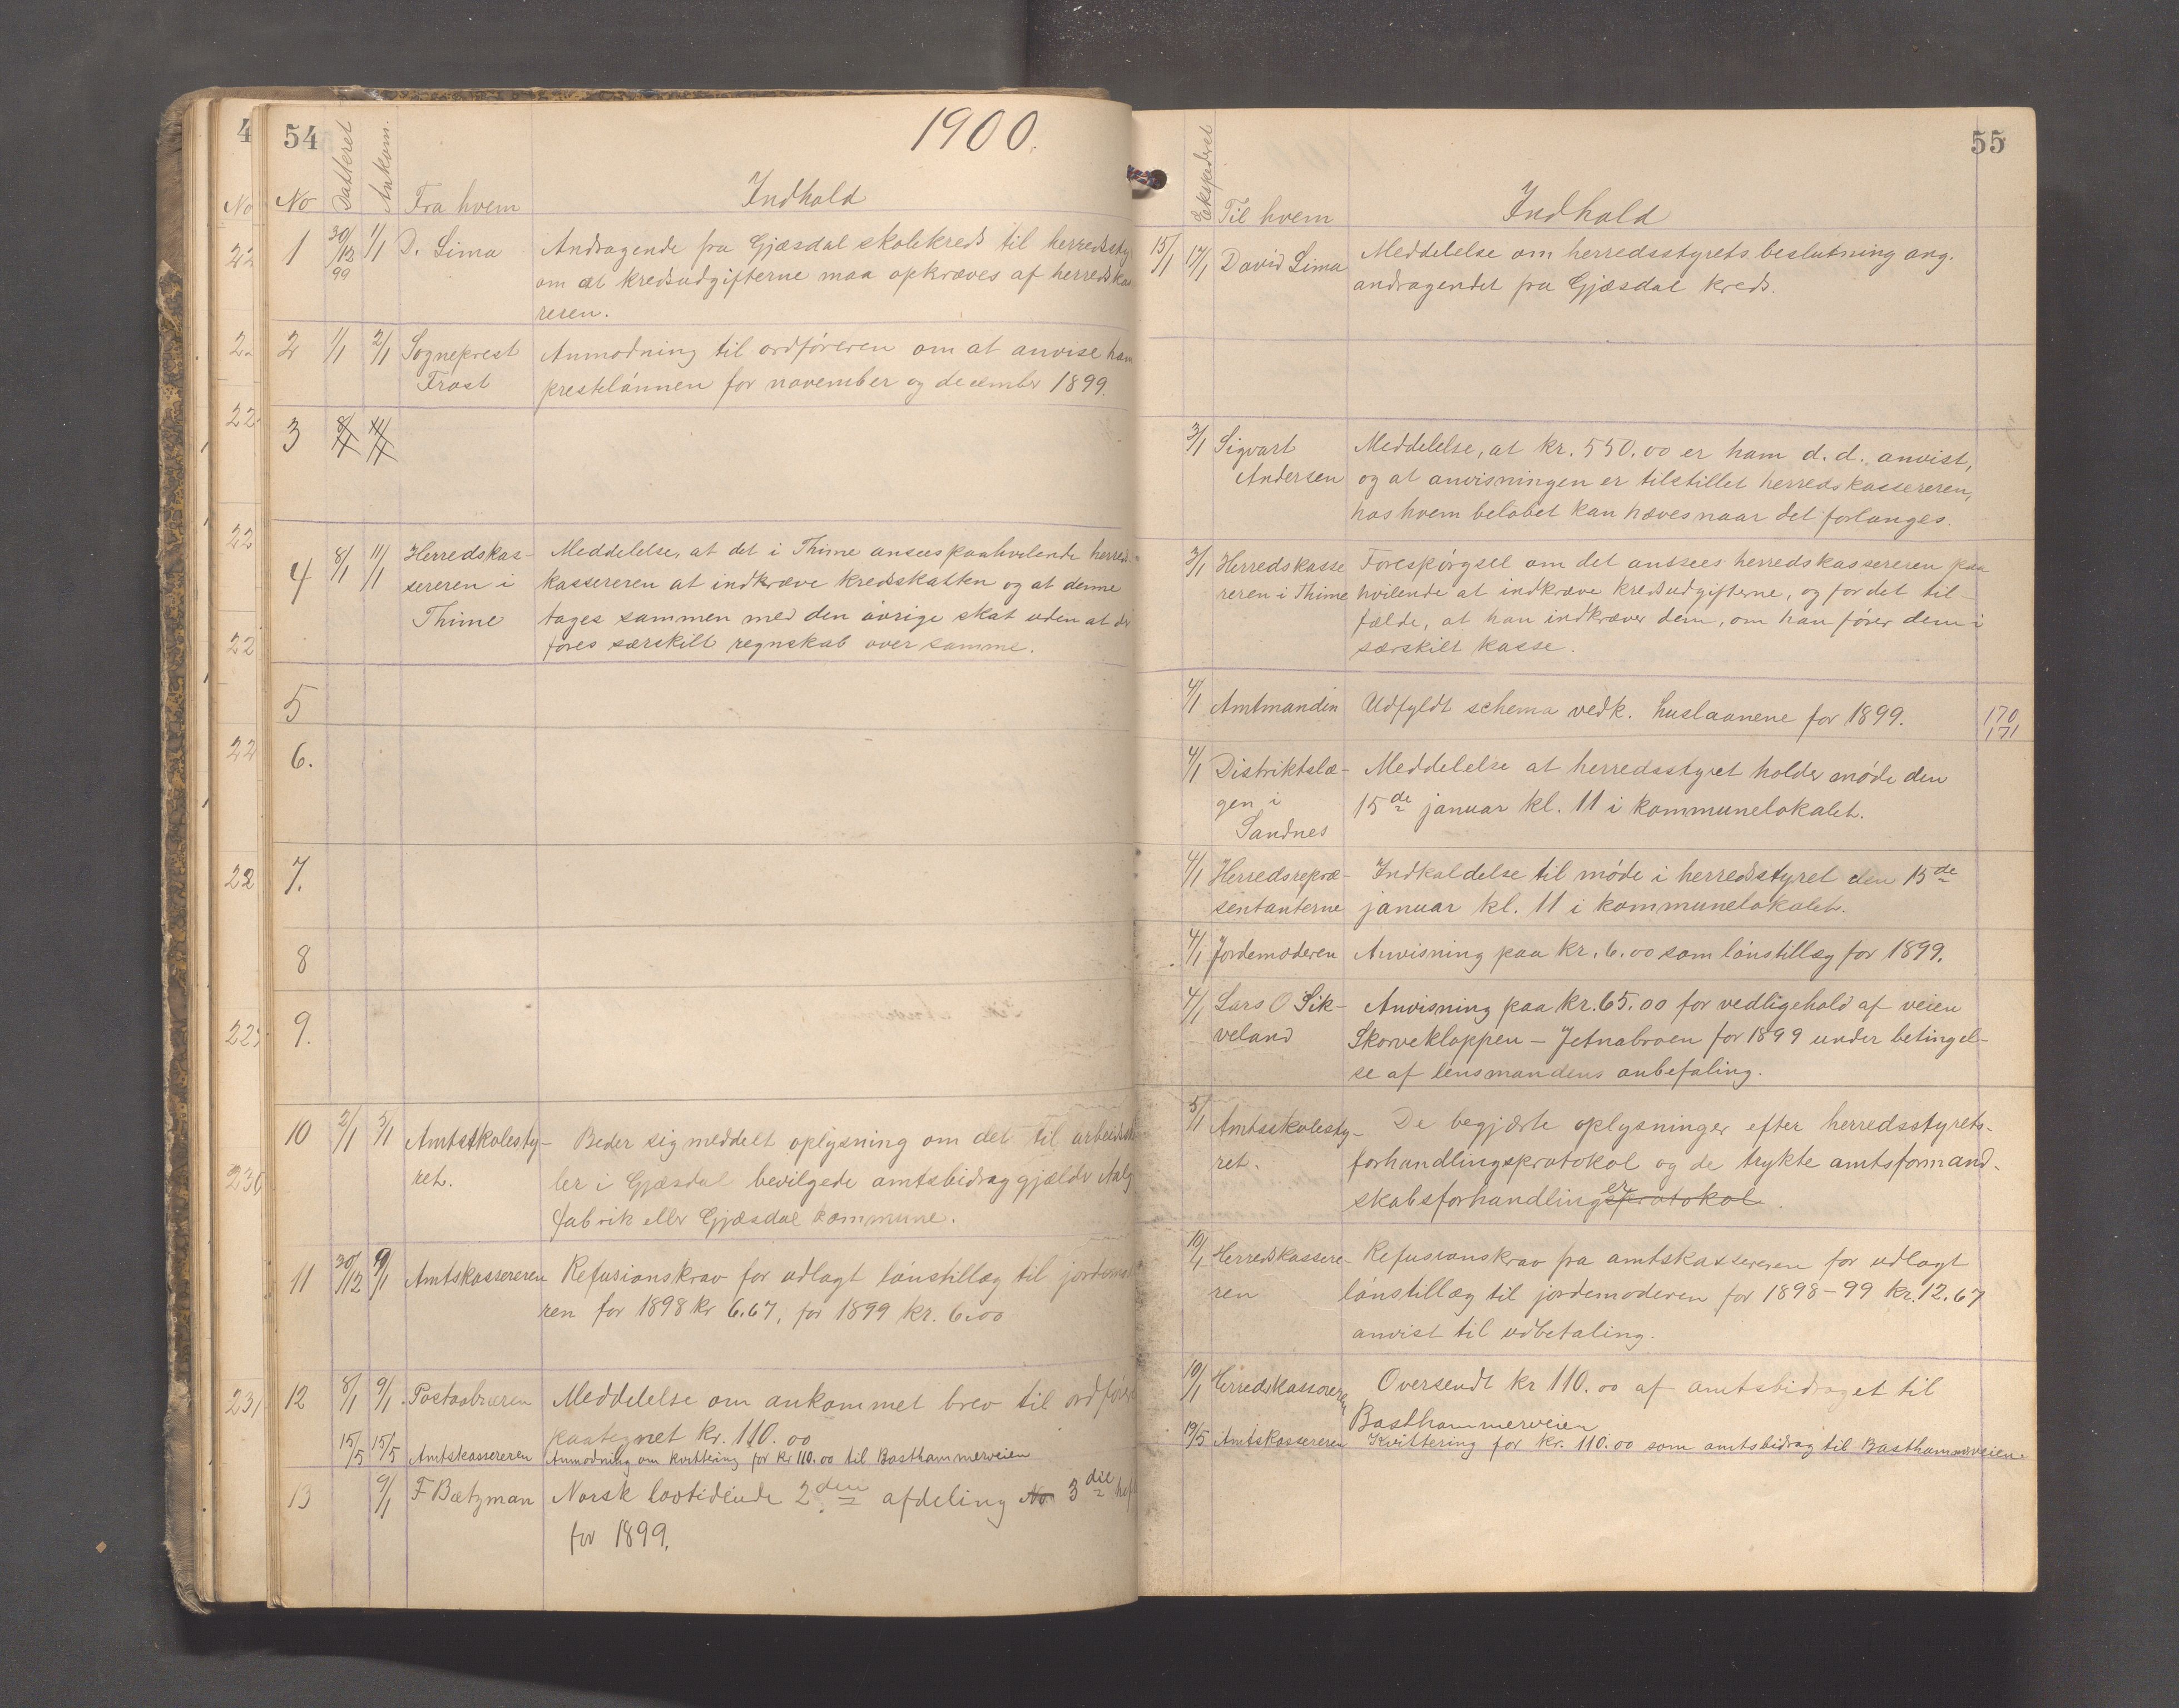 54
1900.
No Datteret Ankom. Fra hvem Indhold
1 30/12 99 1/1 D. Lima Andragende fra Gjæsdal skolekreds til herredssty
om at kredsudgifterne maa opkræves af herredskas
reren.
2 1/1 2/1 Sogneprest Anmodning til ordføreren om at anvise ham
Frost prestelønnen for november og december 1899.
3 8/1 11/1
4 8/1 11/1 Herredskas- Meddelelse, at det i Thime ansees paahvilende herreds-
sereren i kassereren at indkræve kredsskatten og at denne
Thime tages sammen med den øvrige skat uden at der
føres særskilt regnskab over samme.
5
6.
7.
8
9.
10 2/1 3/1 Amtsskolesty- Beder sig meddelt oplysning om det til arbeidssko
ret. ler i Gjæsdal bevilgede amtsbidrag gjælder Aalg
fabrik eller Gjæsdal kommune.
11 30/12 9/1 Amtskassereren Refusionskrav for udlagt lønstillæg til jordemod
ren for 1898 kr 6.67, for 1899 kr. 6.00
12 8/1 9/1 Postaabneren Meddelelse om ankommet brev til ordføre
paategnet kr. 110.00
15/5 15/5 Amtskassereren Anmodning om kvittering for kr 110.00 til Basthammerveien
13 9/1 F Bætzman Norsk lovtidende 2den afdeling No 3die hef
for 1899.
4
No
22
22
22
22
22
22
22
55
Ekspederet Til hvem Indhold
15/1 17/1 David Lima Meddelelse om herredsstyrets beslutning ang.
andragendet fra Gjæsdal kreds.
3/1 Sigvart Meddelelse, at kr. 550.00 er ham d.d. anvist,
Andersen og at anvisningen er tilstillet herredskassereren,
hos hvem beløbet kan hæves naar det forlanges.
3/1 Herredskasse Forespørgsel om det ansees herredskassereren paa
reren i Thime hvilende at indkræve kredsudgifterne, og for det til-
fælde, at han indkræver dem, om han fører dem i
særskilt kasse.
4/1 Amtmanden Udfyldt schema vedk. huslaanene for 1899. 170
171
4/1 Distriktslæ- Meddelelse at herredsstyret holder møde den
gen i 15de januar kl. 11 i kommunelokalet.
Sandnes
4/1 Herredsrepræ- Indkaldelse til møde i herredsstyret den 15de
sentanterne januar kl. 11 i kommunelokalet.
4/1 Jordemoderen Anvisning paa kr. 6.00 som lønstillæg for 1899.
4/1 Lars O Sik- Anvisning paa kr. 65.00 for vedligehold af veien
veland Skorvekloppen - Jetnabroen for 1899 under betingel-
se af lensmandens anbefaling.
5/1 Amtsskolesty- De begjærte oplysninger efter herredsstyrets-
ret. forhandlingsprotokol og de trykte amtsformand-
skabsforhandlinger sprotokol.
10/1 Herredskassere- Refusionskrav fra amtskassereren for udlagt
ren lønstillæg til jordemoderen for 1898-99 kr. 12.67
anvist til udbetaling.
10/1 Herredskassereren Oversendt kr 110.00 af amtsbidraget til
Basthammerveien
19/5 Amtskassereren Kvittering for kr. 110.00 som amtsbidrag til Basthammerveien.